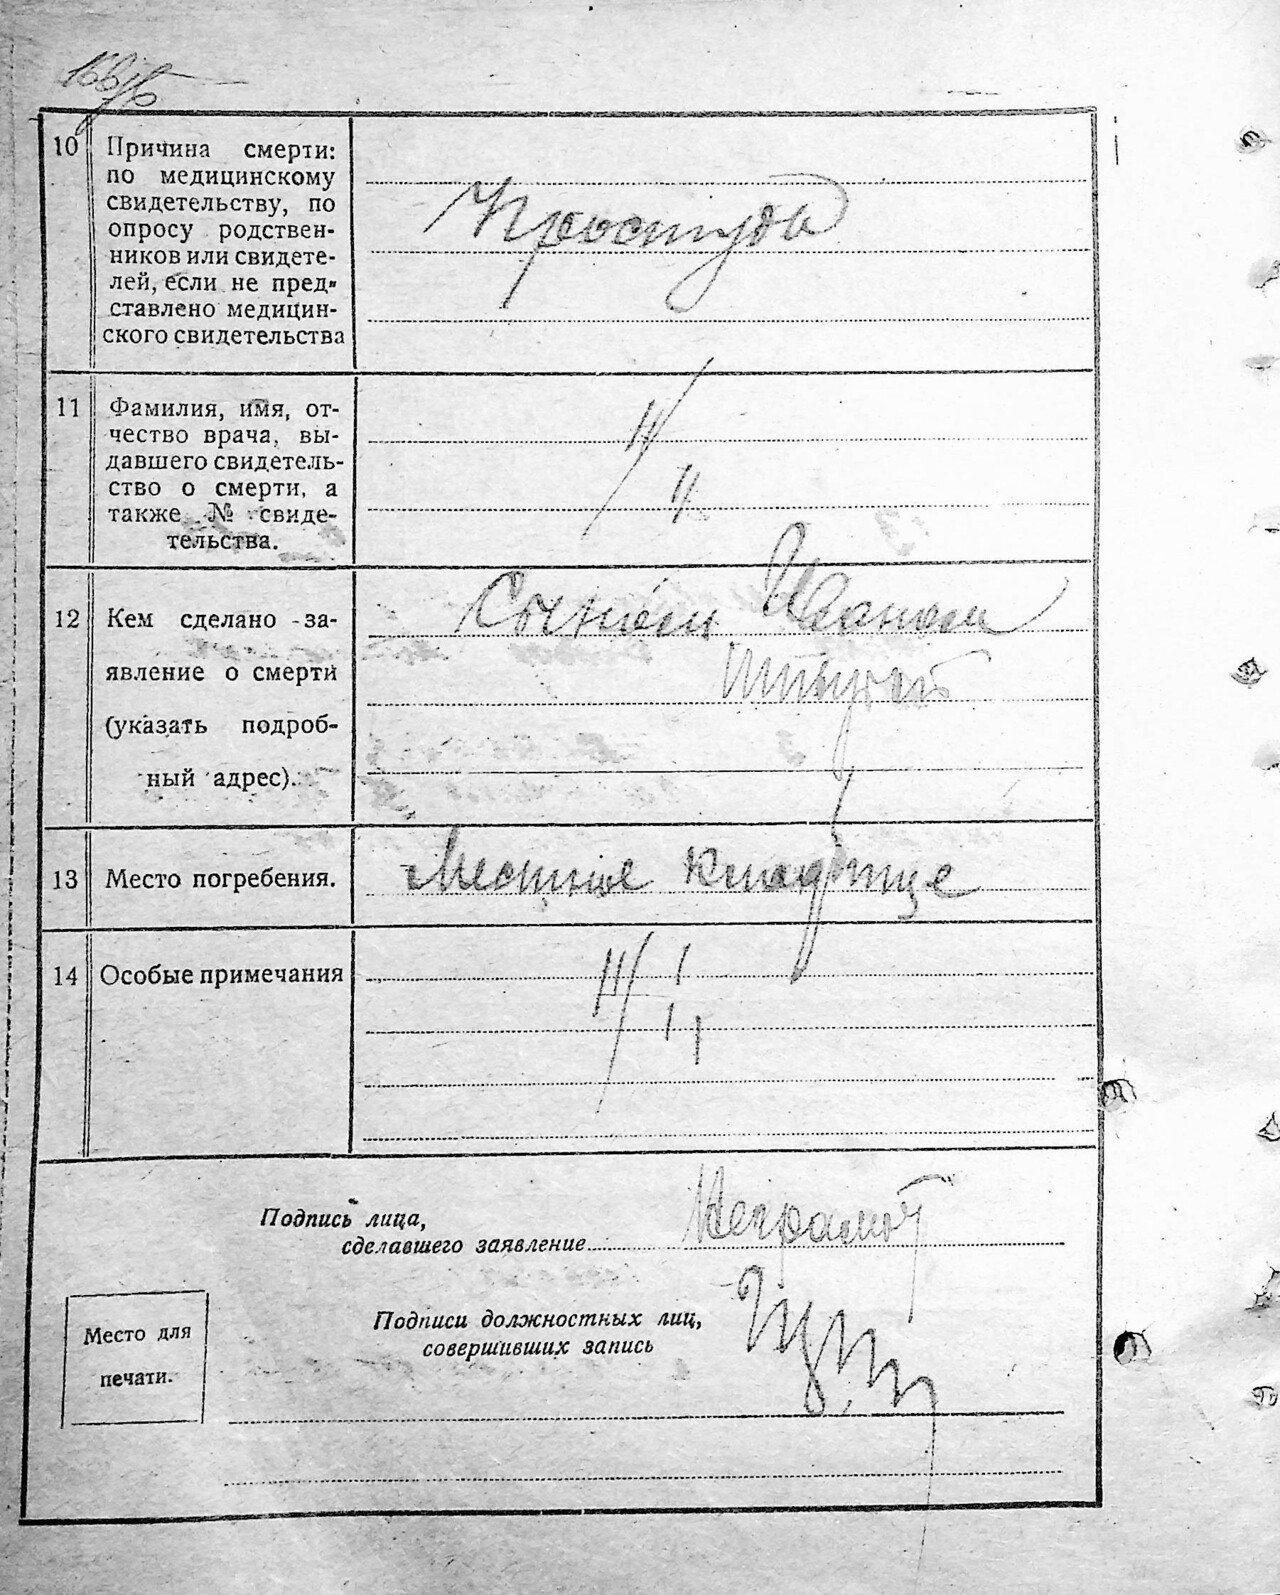 10 Причина смерти:
по медицинскому
свидетельству, по
опросу родствен-
ников или свидете-
лей, если не пред-
ставлено медицин-
ского свидетельства
Простуда
11 Фамилия, имя, от-
чество врача, вы-
давшего свидетель-
ство о смерти, а
также № свиде-
тельства.
12 Кем сделано за-
явление о смерти
(указать подроб-
ный адрес).
Сыном Иваном
13 Место погребения.
Местное кладбище
14 Особые примечания
Подпись лица,
сделавшего заявление
Неграмот
Подписи должностных лиц,
совершивших запись
Место для
печати.